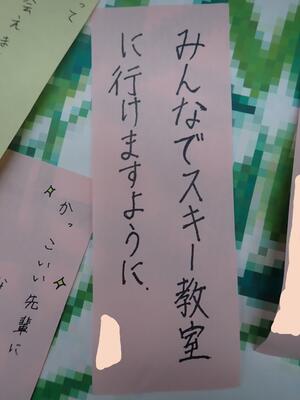 みんなでスキー教室
に行けますように.
かっこいい先輩に
って
会えま